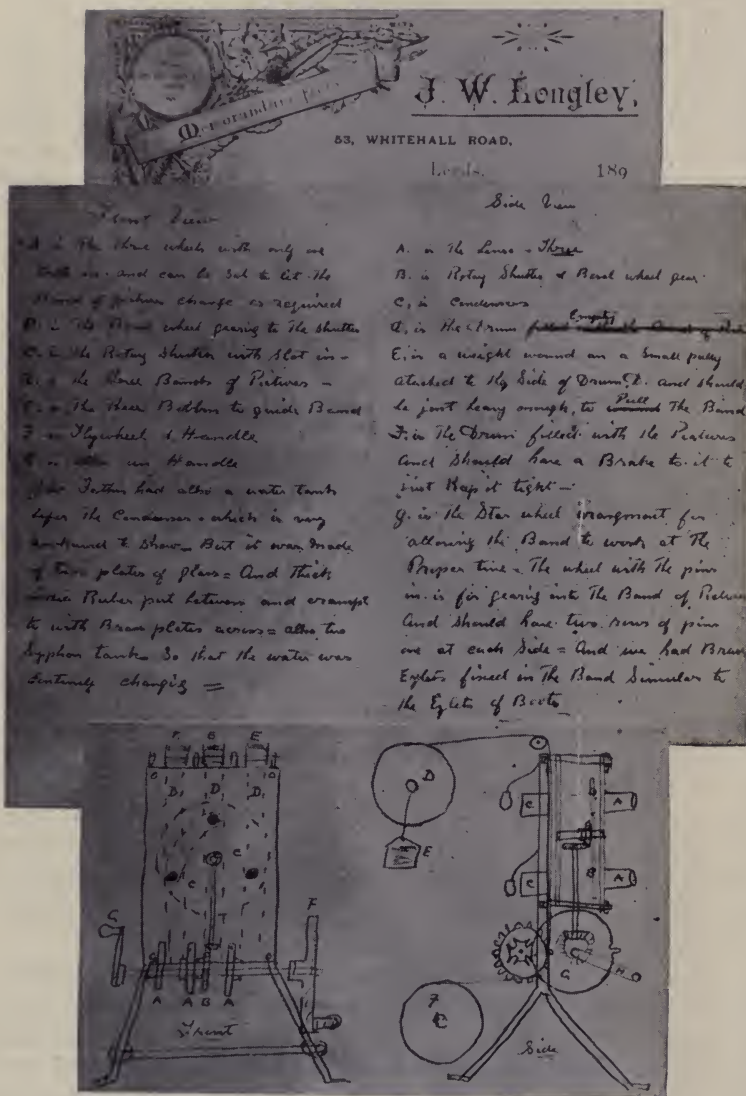 Memorandum from
J. W. Longley,
53, WHITEHALL ROAD,
Leeds. 189
Front View
A is The three wheels with only one
tooth in. and can be Set to let the
Band of pictures change as required
B. is The Bevel wheel gearing to The Shutter
C. is the Rotary Shutter with Slot in -
D. is the three Bands of Pictures -
E. is The three Bobbins to guide Band
F is Flywheel & Handle
G is an Handle
Your Father had also a water tank
before The Condensers - which is very
awkward to Show. But it was made
of two plates of glass = And thick
india Ruber put between and crampt
to with Brass plates across = also two
Syphon tanks So that the water was
Continuely changing =
Side View
A. is The Lense - Three
B. is Rotary Shutter & Bevel wheel gear.
C, is Condensers
D, is the Drum Empty
E, is a weight wound on a Small pully
attached to the Side of Drum, D. and should
be just heavy enough, to Pull The Band
F. is The Drum filled with the Pictures
And Should have a Brake to it to
just Keep it tight -
G. is the Star wheel arrangement for
allowing the Band to work at The
Proper time - The wheel with The pins
in. is for gearing into The Band of Pictures
And should have two rows of pins
one at each Side = And we had Brass
Eylets fixed in The Band Simular to
the Eylets of Boots
F. B E
B D D
C
C
G
F
A A B A
Front
D
E
C
B
A
C
B
A
G
H
F
C
Side